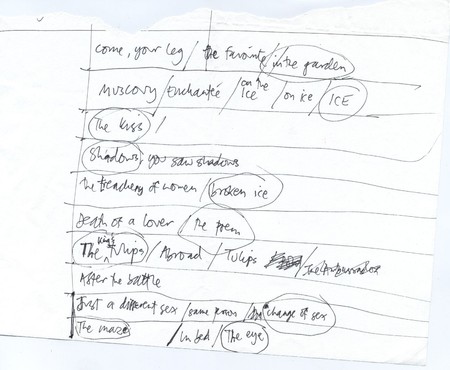 come, your leg / the favourite / in the garden
MUSCOVY / Enchantée / on the ICE / on ice / ICE
The Kiss /
Shadows, you saw shadows
the treachery of women / broken ice
Death of a lover / the poem
The king's tulips / Abroad / Tulips / The Ambassadors
After the battle
Just a different sex / same person / change of sex
The maze / in bed / The eye